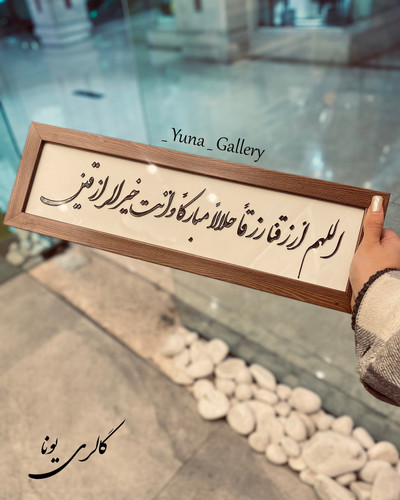 _ Yuna _ Gallery
اللهم ارزقنا رزقاً حلالاً مبارکاً و انت خیر الرازقین
گالری یونا